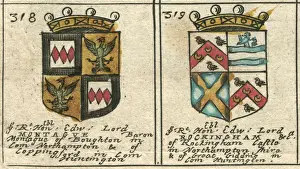 318
Ye Rt. Honble. Edw: Lord
MONTAGUE Baron
Montague of Boughton in
Com Northampton &
Coppingford in Com
Huntington
319
Ye Rt. Honble. Edw: Lord
ROCKINGHAM &c.
of Rockingham Castle
in Northampton Shire
& of Great Gidding in
Com Huntington.